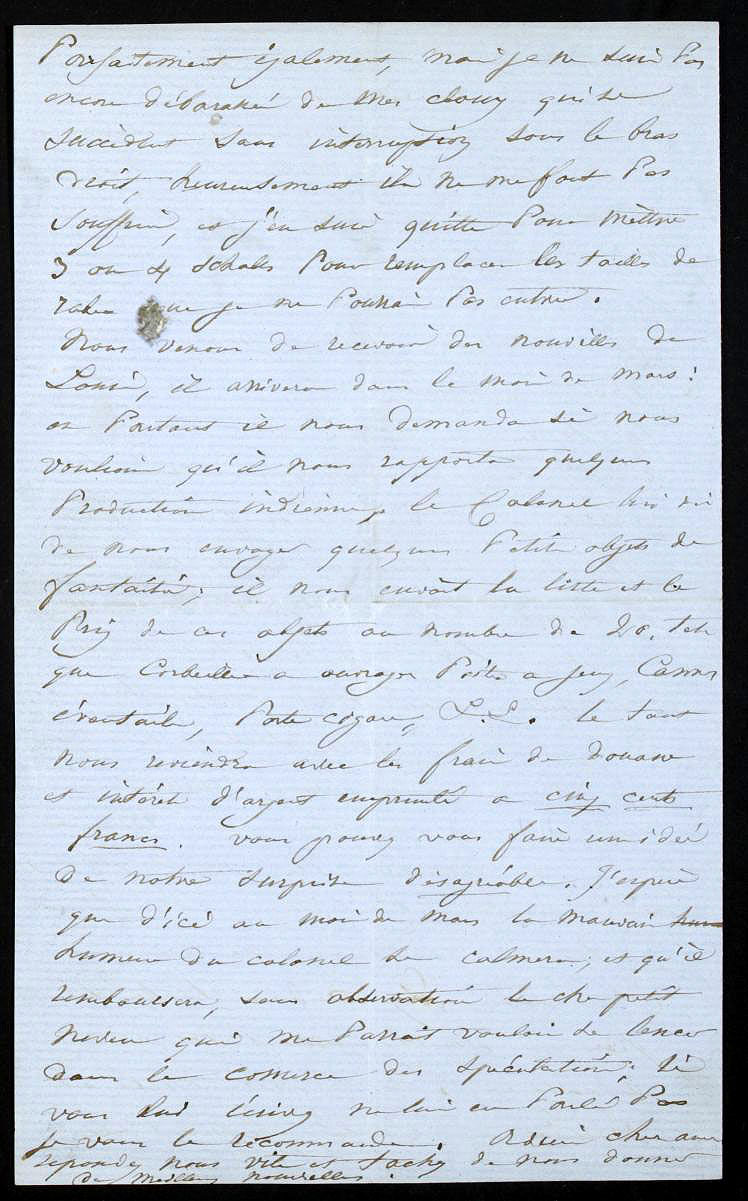 Parfaitement également, mais je ne suis Pas
encore débarassé de mes cloux qui se
succèdent sans interruption sous le bras
droit, heureusement ils ne me font Pas
Souffrir, et j'en suis quitte Pour mettre
3 ou 4 schales Pour remplacer les tailles de
robes que je ne Pourrai Pas entrer.
Nous venons de recevoir des nouvelles de
Louis, il arrivera dans le mois de mars:
en Partant il nous demanda si nous
voulions qu'il nous rapporta quelques
Production indiennes le Colonel lui dit
de nous envoyer quelques Petits objets de
fantaisie; il nous envoit la liste et le
Prix de ces objets au nombre de 20. tels
que Corbeille a ouvrages Boite a jeux, Cannes
éventails, Porte cigares, le tout
nous reviendra avec les frais de Douane
et intérêts d'argent emprunté a cinq cents
francs. vous pouvez vous faire une idée
De notre surprise désagréable. J'espère
que d'icé au mois de mars la mauvaise
humeur du colonel se calmera; et qu'il
remboursera, sans observation le cher petit
Neveu qui me Parrait vouloir se lencer
dans le comerce des spéculations; si
vous lui écrivez ne lui en Parlez Pas
je vous le recommande. Adieu chers amis
reponder nous vite et tachez de nous donner
de meilleurs nouvelles.